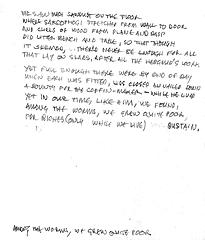 SAWDUST ON THE FLOOR
STRETCHED FROM WALL TO DOOR
AND CURLS OF WOOD FROM PLANE AND
DID LITTER BENCH AND TABLE, SO THAT THOUGH
IT SEEMED, THERE NEVER BE ENOUGH FOR ALL
THAT LAY ON SLABS, AFTER ALL THE
YET FULL ENOUGH THERE WERE BY END OF DAY
WHEN EACH WAS FITTED, WAS CLOSED AND NAILED DOWN
A BOUNTY FOR THE COFFIN-MAKER - WHILE HE LIVED
YET IN OUR TIME, LIKE HIM, WE FOUND,
AMONG THE WORMS, WE GREW QUITE POOR,
FOR RICHES (ONLY WHILE WE LIVE) SUSTAIN.
AMONG THE WORMS, WE GREW QUITE POOR